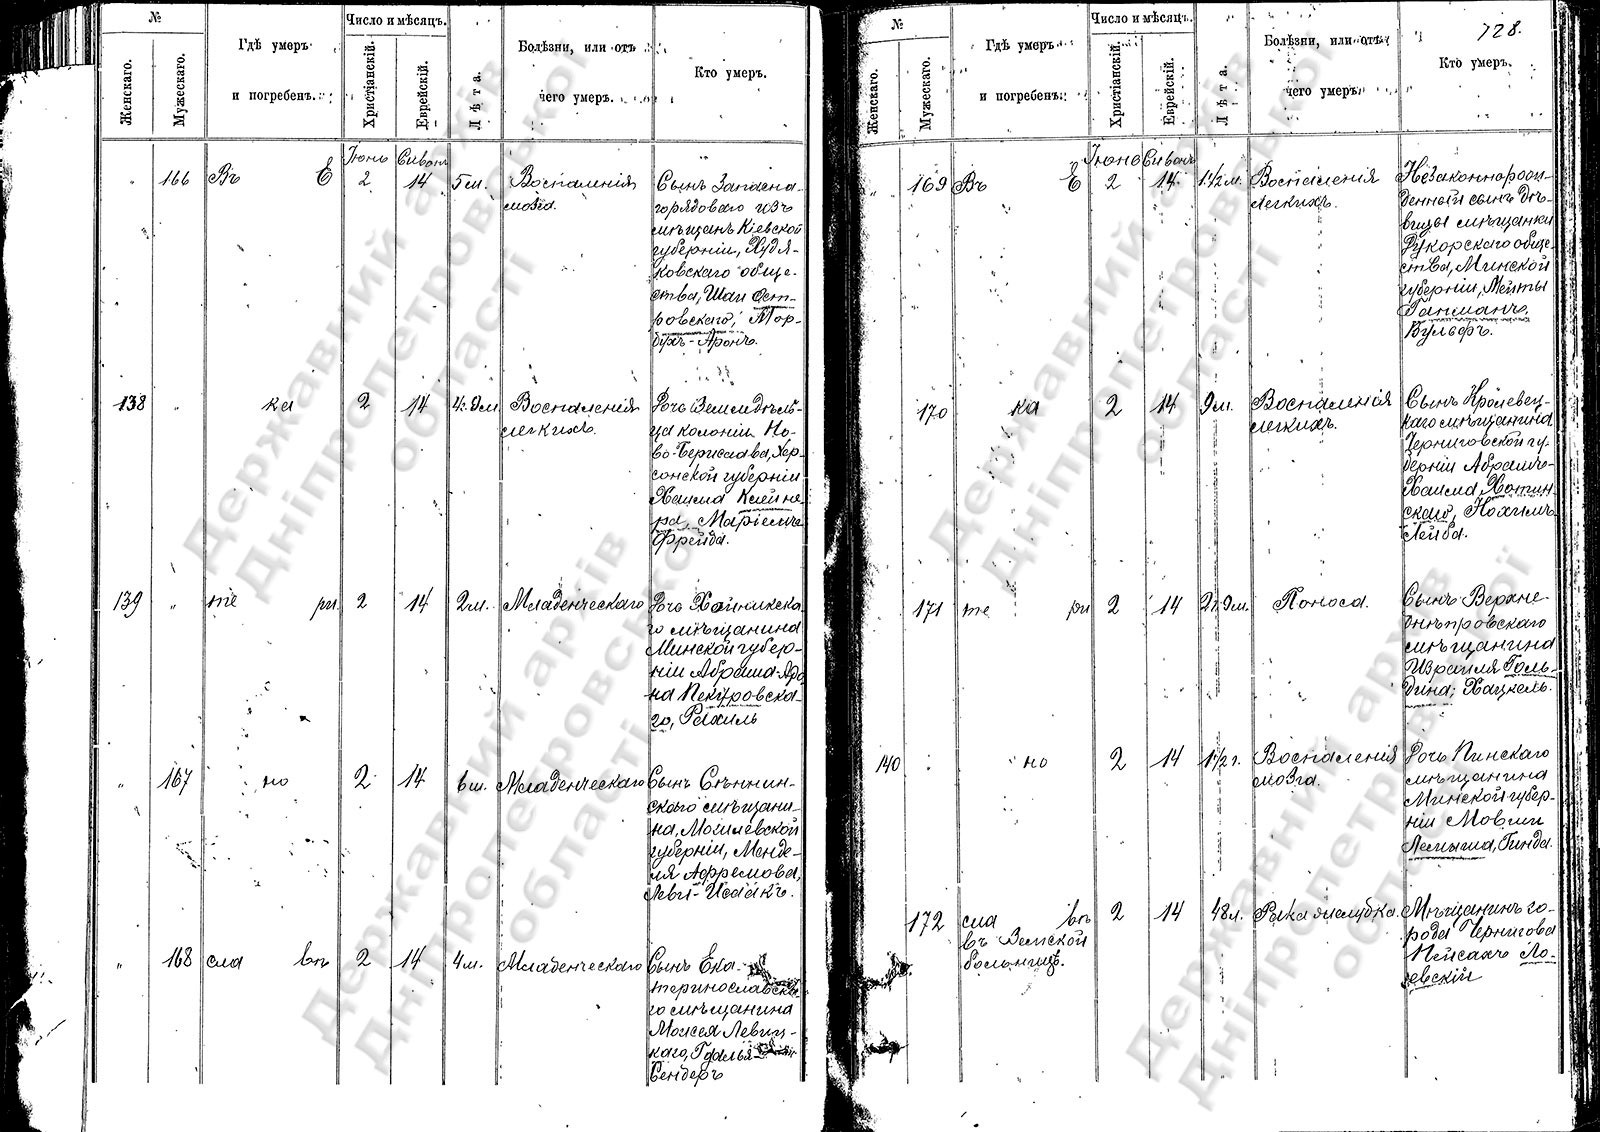 №
Женскаго.
Мужескаго.
Гдѣ умеръ
и погребенъ.
Число и мѣсяцъ.
Христіанскій.
Еврейскій.
Лѣта.
Болѣзни, или отъ
чего умеръ.
Кто умеръ.
166 Въ Е Іюнь 2 Сивонъ 14 5 м. Воспаленія
мозга.
Сынъ Запасна-
го рядоваго изъ
мѣщанъ Кіевской
губерніи, Худя-
ковскаго обще-
ства, Шаи Ост-
ровскаго, Мор-
духъ-Аронъ.
138 ка 2 14 4 г. 9 м. Воспаленія
легкихъ.
Дочь Земледѣль-
ца колоніи Но-
во-Берислава, Хер-
сонской губерніи
Хаима Клейне-
ра, Маріемъ
Фрейда.
139 те ри 2 14 2 м. Младенческаго
Дочь Хойникска-
го мѣщанина
Минской губер-
ніи Абрама-Аро-
на Пекуровска-
го, Рахиль
167 но 2 14 6 м. Младенческаго
Сынъ Сѣннин-
скаго мѣщани-
на, Могилевской
губерніи, Менде-
ля Афремова,
Леви-Исаакъ.
168 сла въ 2 14 4 м. Младенческаго
Сынъ Ека-
теринославска-
го мѣщанина
Моисея Левиц-
каго, Гдалья-
Сендеръ
728.
№
Женскаго.
Мужескаго.
Гдѣ умеръ
и погребенъ.
Число и мѣсяцъ.
Христіанскій.
Еврейскій.
Лѣта.
Болѣзни, или отъ
чего умеръ.
Кто умеръ.
169 Въ Е Іюнь 2 Сивонъ 14 1 1/2 м. Воспаленія
легкихъ.
Незаконнорож-
денный сынъ дѣ-
вицы мѣщанки
Дукорскаго обще-
ства, Минской
губерніи, Мейты
Ганманъ,
Вульфъ.
170 ка 2 14 9 м. Воспаленія
легкихъ.
Сынъ Кролевец-
каго мѣщанина
Черниговской гу-
берніи Абрамъ-
Хаима Хотин-
скаго, Нохимъ-
Лейба.
171 те ри 2 14 2 г. 9 м. Поноса.
Сынъ Верхне-
днѣпровскаго
мѣщанина
Израиля Голь-
дина, Хацкель.
140 но 2 14 1 1/2 г. Воспаленія
мозга.
Дочь Пинскаго
мѣщанина
Минской губер-
ніи Мовши
Лемыша, Гинда.
172 сла въ 2 14 48 л. Рака желудка.
въ Земской
больницѣ.
Мѣщанинъ го-
рода Чернигова
Пейсахъ Ло-
евскій
Державний архів
Дніпропетровської
області
Державний архів
Дніпропетровської
області
Державний архів
Дніпропетровської
області
Державний архів
Дніпропетровської
області